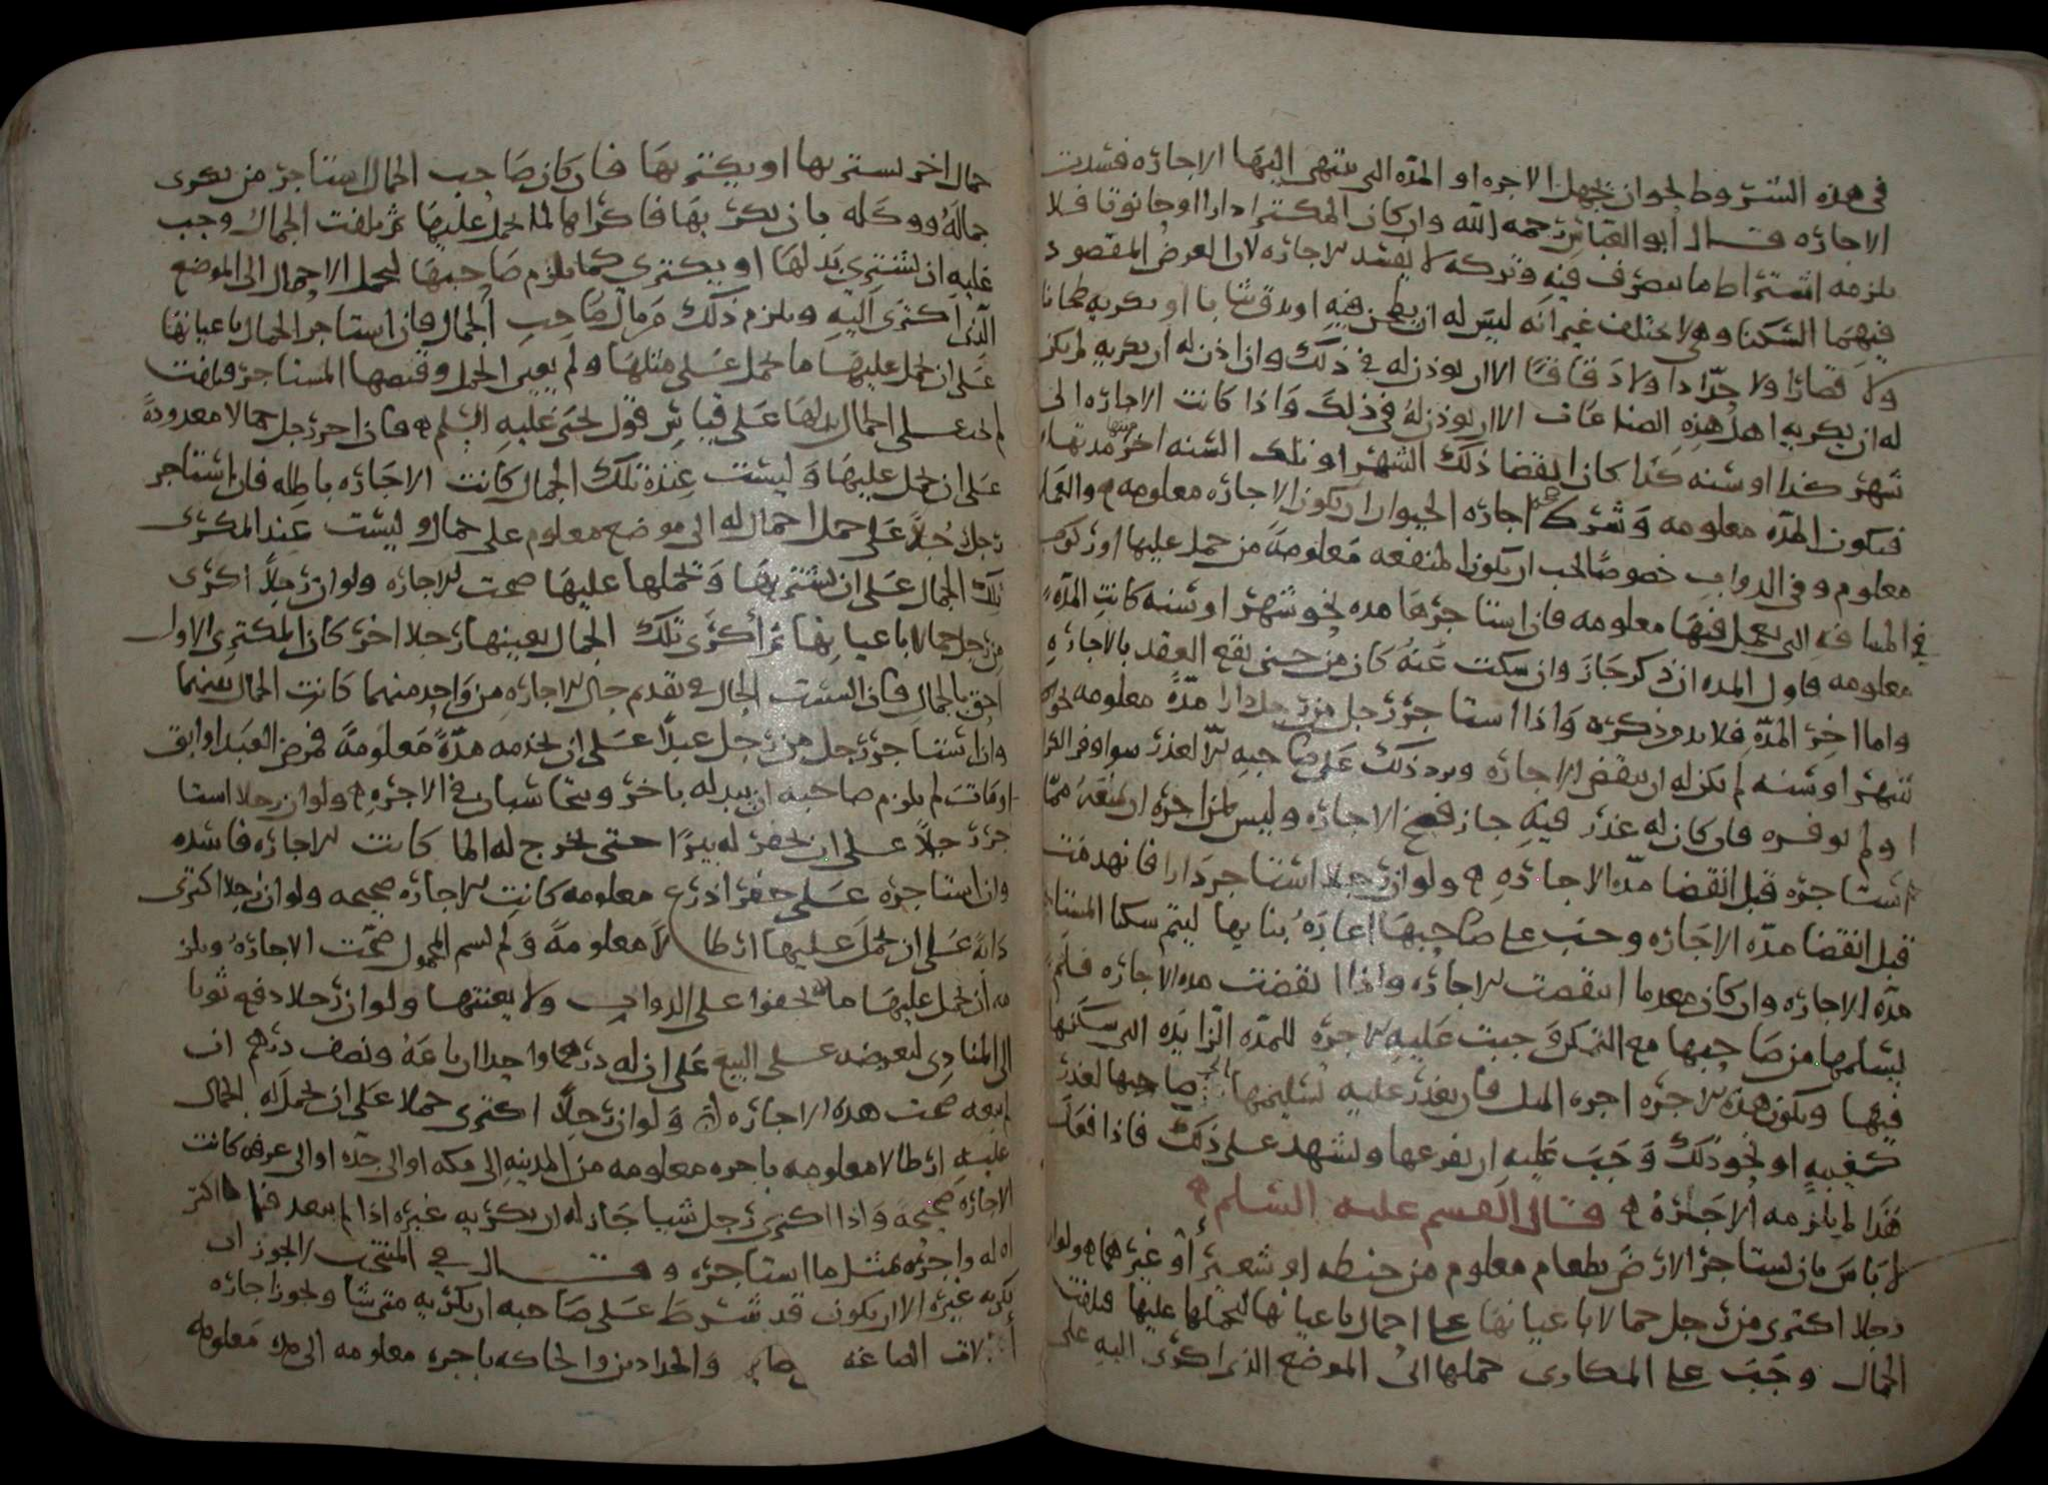 في هذه الشروط نحو ان يجهل الاجره او المده التي ينتهي اليها الاجاره فسدت
الاجاره قال ابو العباس رحمه الله وان كان المكترا دارا او حانوتا فلا
يلزمه اشتراط ما يصرف فيه وتركه لا يفسد الاجاره لان الغرض المقصود
فيهما السكنا وهي لا تختلف غير انه ليس له ان يطحن فيه او يدق شيا يا او يكريه طحانا
ولا قصارا ولا حدادا ولا دقاقا الا ان يوذن له في ذلك واذا اذن له ان يكريه لم يكن
له ان يكريه اهل هذه الصناعات الا ان يوذن له في ذلك واذا كانت الاجاره الى
شهر كذا او سنه كذا كان انقضا ذلك الشهر او تلك السنه اخر مدتها
فتكون المده معلومه وشرك اجاره الحيوان ان يكون الاجاره معلومه والعمل
معلوم وفي الدواب خصوصا يجب ان يكون المنفعه معلومه من حمل عليها او ركوب
في المسافه التي يعمل فيها معلومه فان استاجرها مده نحو شهر او سنه كانت المده
معلومه فاول المده ان ذكر جاز وان سكت عنه كان من حين يقع العقد بالاجاره
واما اخر المده فلا بد من ذكره واذا استاجر رجل من رجل دارا مدة معلومه نحو
شهر او سنه لم يكن له ان ينقض الاجاره ويرد ذلك على صاحبه الا لعذر سوا وفر الكرا
او لم يوفره فان كان له عذر فيه جاز فسخ الاجاره وليس لمن اجره ان يمنعه مما
استاجره قبل انقضا مده الاجاره ولو ان رجلا استاجر دارا فانهدمت
قبل انقضا مده الاجاره وجب على صاحبها اعادة بنايها ليتم سكنا المستاجر
مده الاجاره وان كان معدما انتقضت الاجاره واذا انقضت مده الاجاره فلم
يسلمها من صاحبها مع التمكن وجبت عليه الاجره للمده الزايده التي سكنها
فيها ويكون هذه الاجره اجره المثل فان تعذر عليه تسليمها الى صاحبها لعذر
كغيبه او نحو ذلك وجب عليه ان يفرغها ويشهد على ذلك فاذا فعل
هذا لم يلزمه الاجره قال القسم عليه السلم
لا باس بان يستاجر الارض بطعام معلوم من حنطه او شعير او غيرهما ولو ان
رجلا اكترى من رجل جمالا باعيانها على احمال باعيانها ليحملها عليها فتلفت
الجمال وجب على المكاري حملها الى الموضع الذي اكترى اليه على
جمال اخر يستريها او يكتريها فان كان صاحب الجمال استاجر من يكري
جماله ووكله بان يكريها فاكراها لما يحمل عليها ثم تلفت الجمال وجب
عليه ان يشتري بدلها او يكتري كما يلزم صاحبها ليحمل الاحمال الى الموضع
الذي اكترى اليه ويلزم ذلك من مال صاحب الجمال فان استاجر الجمال باعيانها
على ان يحمل عليها ما يحمل على مثلها ولم يعين الحمل وقبضها المستاجر فتلفت
لم يجب على الجمال بدلها على قياس قول يحيى عليه السلم فان اجر رجل جمالا معدودة
على ان يحمل عليها وليست عنده تلك الجمال كانت الاجاره باطله فان استاجر
رجل رجلا على حمل احمال له الى موضع معلوم على جمال وليست عند المكري
تلك الجمال على ان يشتريها ويحملها عليها صحت الاجاره ولو ان رجلا اكترى
من رجل جمالا باعيانها ثم اكرى تلك الجمال بعينها رجلا اخر كان المكتري الاول
احق بالجمال فان التبست الحال في تقدم حال الاجاره من واحد منهما كانت الجمال بينهما
واذا استاجر رجل من رجل عبدا على ان يخدمه مدة معلومة فمرض العبد او ابق
او مات لم يلزم صاحبه ان يبدله باخر ويتحاسبان في الاجره ولو ان رجلا استا
جر رجلا على ان يحفر له بيرا حتى يخرج له الما كانت الاجاره فاسده
وان استاجره على حفر اذرع معلومه كانت الاجاره صحيحه ولو ان رجلا اكترى
دابة على ان يحمل عليها ارطالا معلومة ولم يسم المحمول صحت الاجاره ويلز
مه ان يحمل عليها ما لا يحفوا على الدواب ولا يعنتها ولو ان رجلا دفع ثوبا
الى المنادي ليعرضه على البيع على ان له درهما واحدا ان باعه ونصف درهم ان
لم يبعه صحت هذه الاجاره ولو ان رجلا اكترى حملا على ان يحمل له الجمال
عليه ارطالا معلومه باجره معلومه من المدينه الى مكه او الى جده او الى عرفه كانت
الاجاره صحيحه واذا اكترى رجل شيا جاز له ان يكريه غيره اذا لم يتعد فيما اكتر
اه له واجره بمثل ما استاجره وقال في المنتخب لا يجوز ان
يكريه غيره الا ان يكون قد شرط على صاحبه ان يكريه متى شا ويجوز اجاره
الات الصاغه والحدادين والحاكه باجره معلومه الى مده معلومه